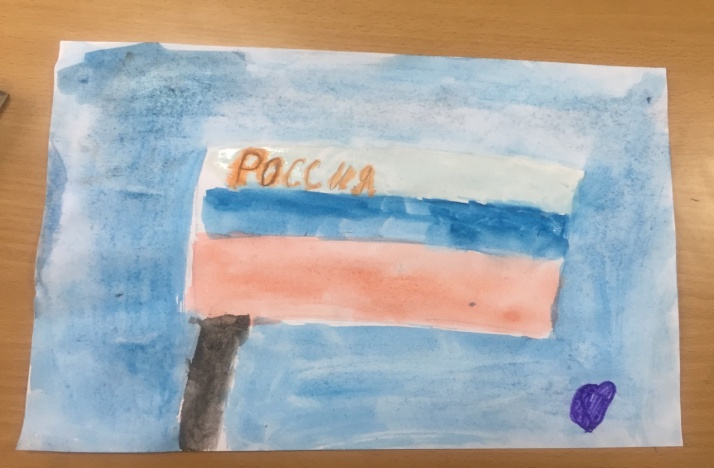 Россия